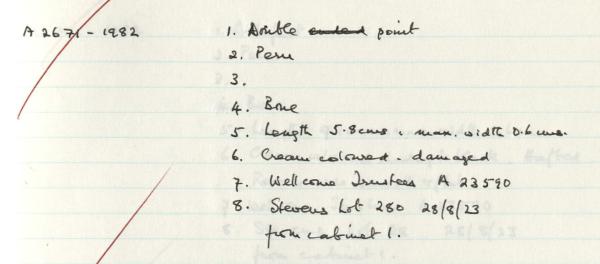 A 2671 - 1982 1. Double ended point
2. Peru
3.
4. Bone
5. Length 5.8cms. max. width 0.6cms.
6. Cream coloured. damaged
7. Wellcome Trustees A 23590
8. Stevens Lot 280 28/8/23
from cabinet 1.